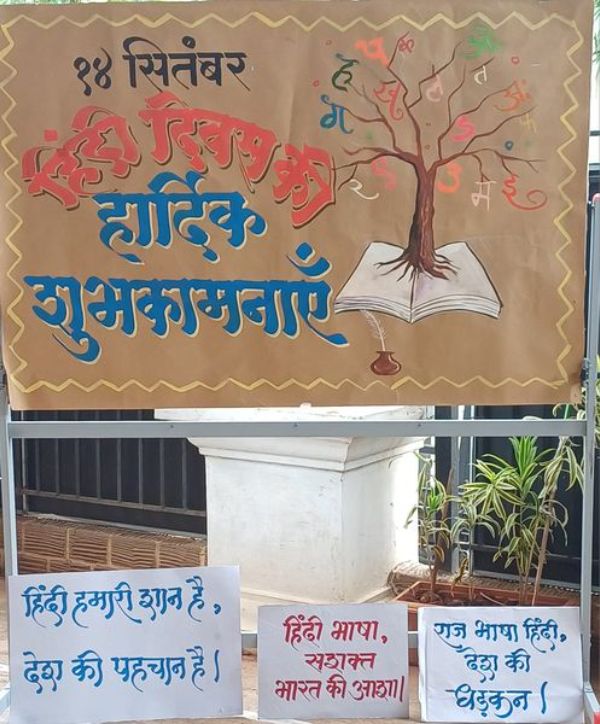 १४ सितंबर
हिंदी दिवस की
हार्दिक
शुभकामनाएँ
ह प क औ
ग ख ल त अः
ड
र इ उ म ई
हिंदी हमारी शान है,
देश की पहचान है।
हिंदी भाषा,
सशक्त
भारत की आशा।
राज भाषा हिंदी,
देश की
धड़कन।